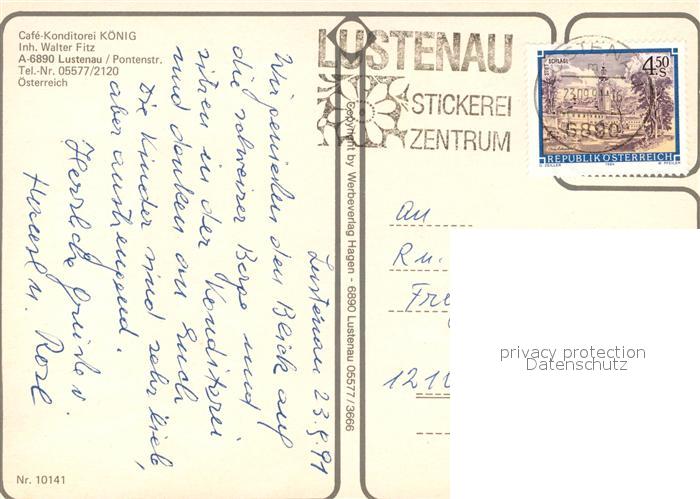 Café-Konditorei KÖNIG
Inh. Walter Fitz
A-6890 Lustenau / Pontenstr.
Tel.-Nr. 05577/2120
Österreich
LUSTENAU
STICKEREI
ZENTRUM
STIFT SCHLÄGL
4.50
S
REPUBLIK ÖSTERREICH
O. ZEILLER 1984 W. PFEILER
23.09.9
6890
Copyright by Werbeverlag Hagen - 6890 Lustenau 05577/3666
Lustenau 23.9.91
Wir genießen den Blick auf
die schweizer Berge und
sitzen in der Konditorei
und denken an Euch
Die Kinder sind sehr lieb,
aber anstrengend.
Herzliche Grüße v.
Hansl u. Rosl
An
Ru.
Fre
121
privacy protection
Datenschutz
Nr. 10141